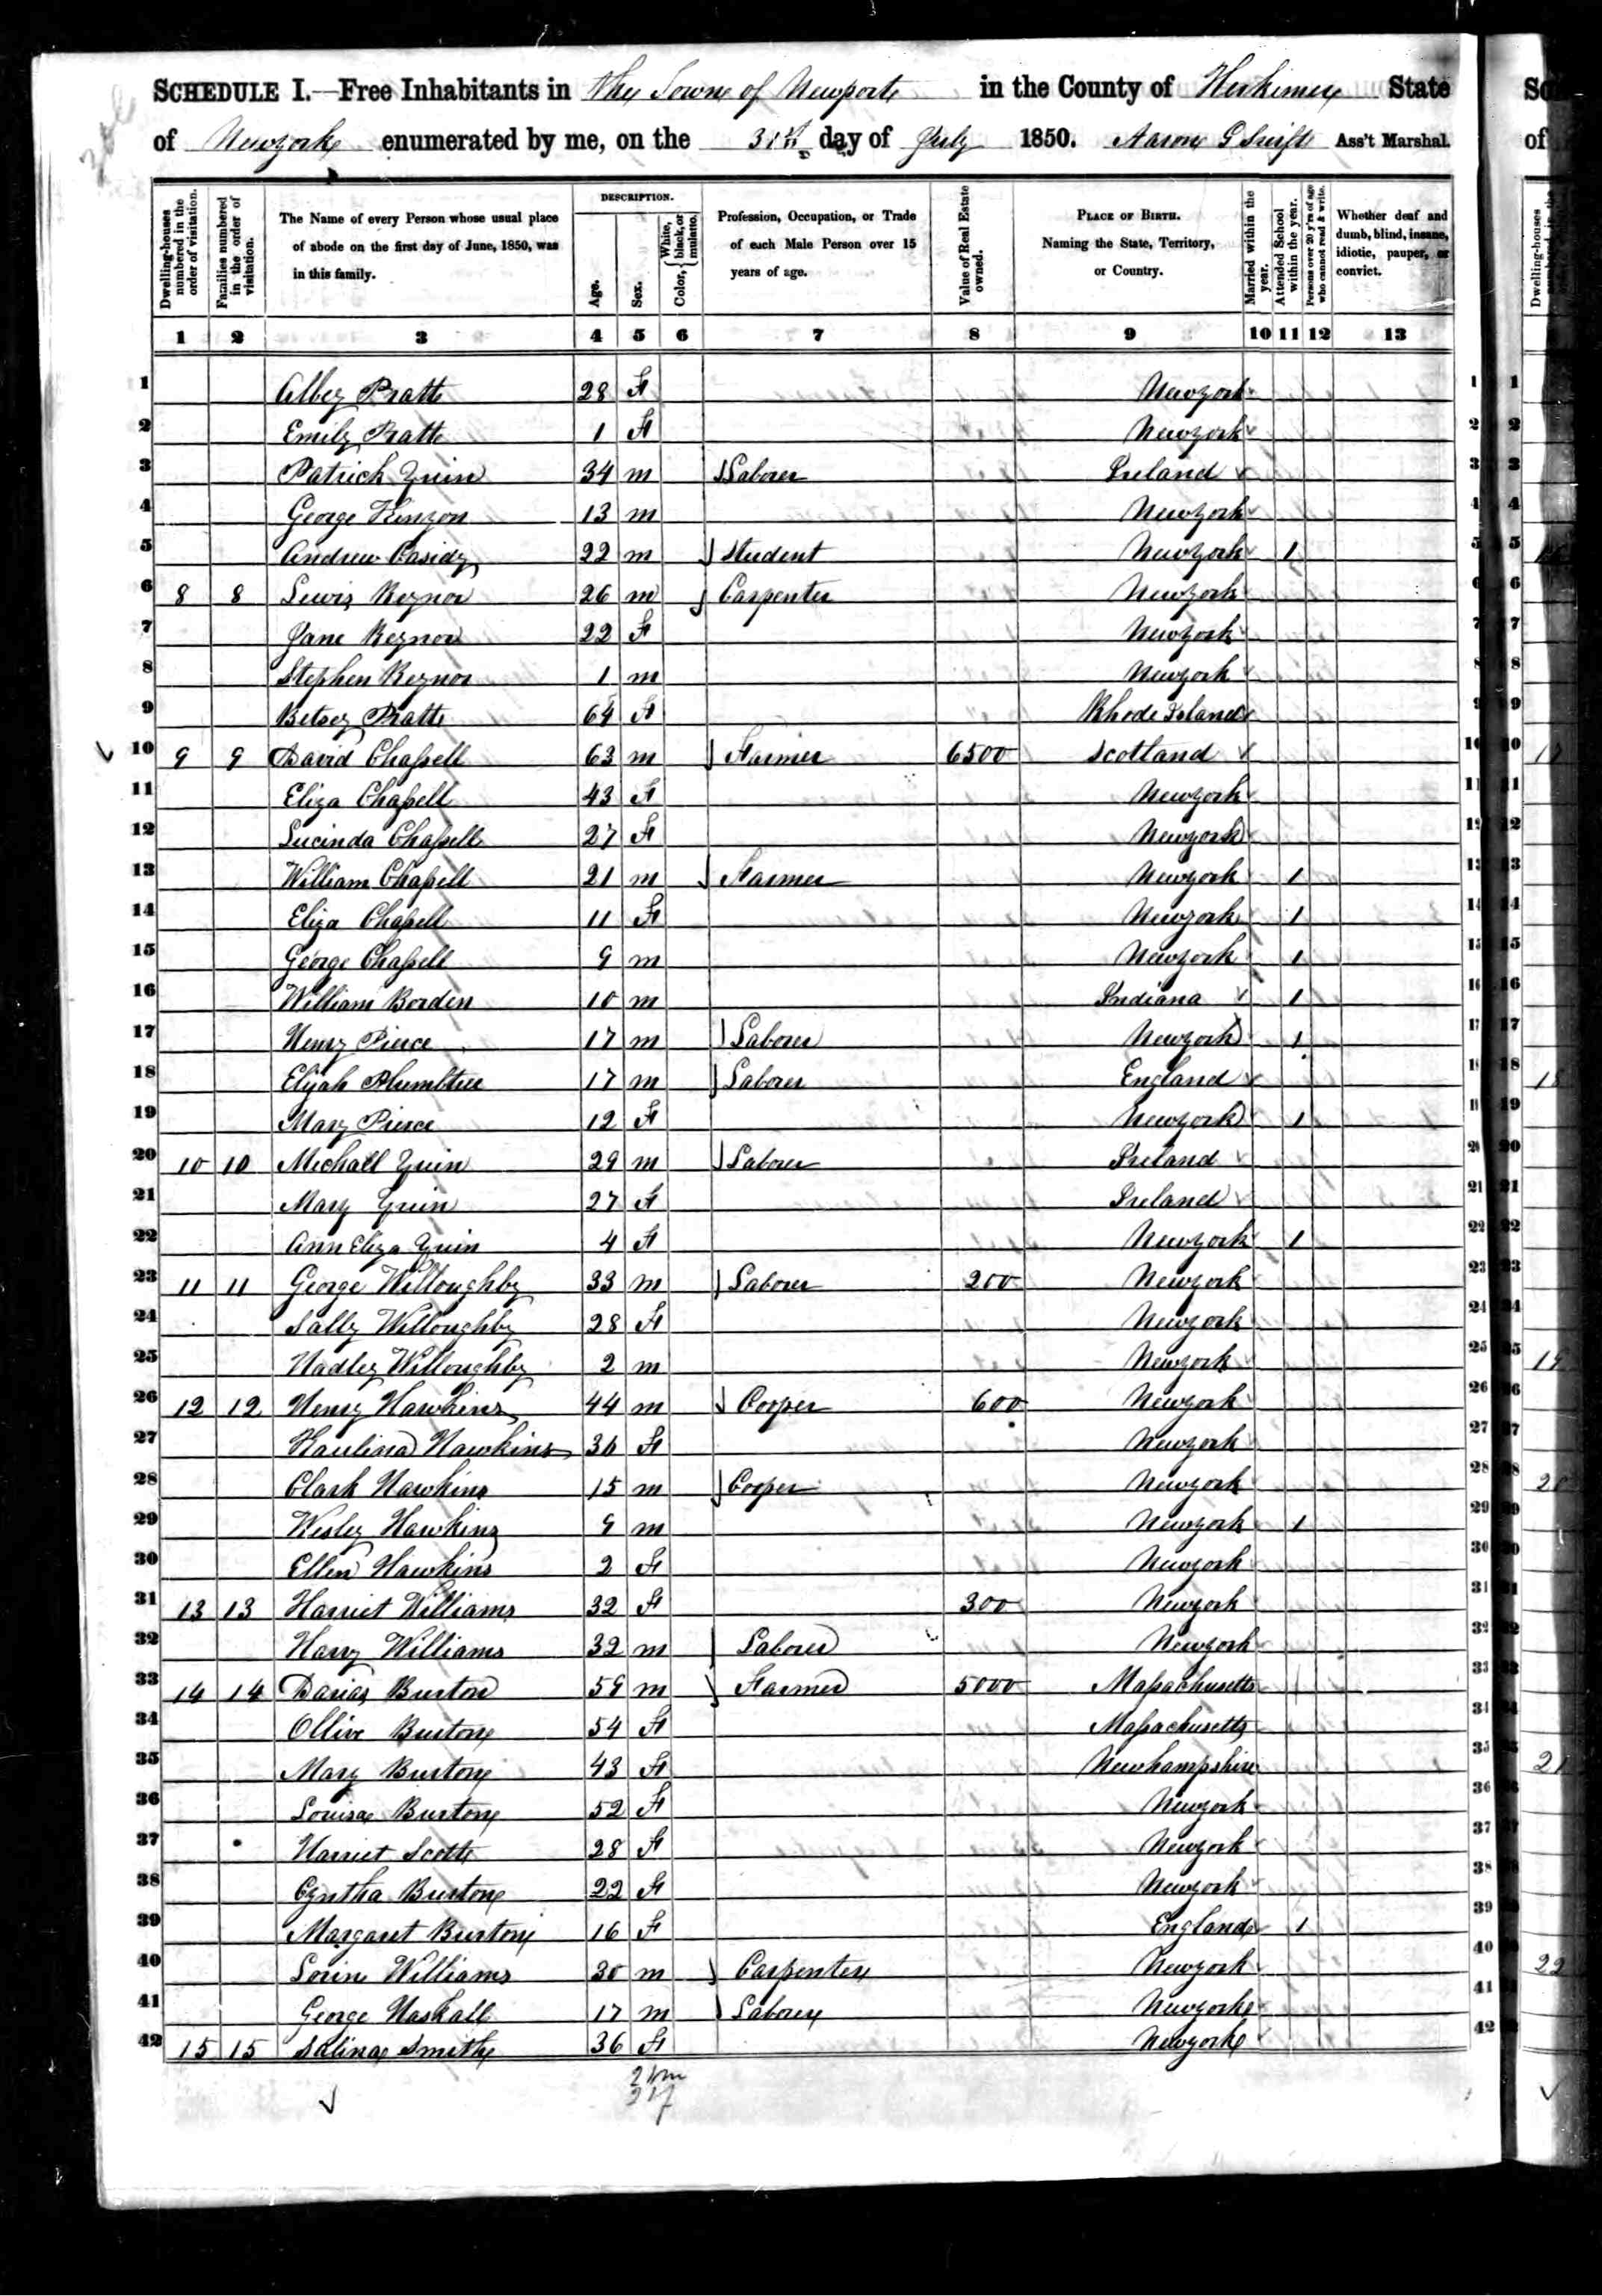 SCHEDULE I.—Free Inhabitants in the Town of Newport in the County of Herkimer State
of Newyork enumerated by me, on the 31st day of July 1850. Aaron G Swift Ass't Marshal.
Dwelling-houses numbered in the order of visitation.
Families numbered in the order of visitation.
The Name of every Person whose usual place of abode on the first day of June, 1850, was in this family.
DESCRIPTION.
Age.
Sex.
Color, { White, black, or mulatto.
Profession, Occupation, or Trade of each Male Person over 15 years of age.
Value of Real Estate owned.
PLACE OF BIRTH. Naming the State, Territory, or Country.
Married within the year.
Attended School within the year.
Persons over 20 y'rs of age who cannot read & write.
Whether deaf and dumb, blind, insane, idiotic, pauper, or convict.
1 2 3 4 5 6 7 8 9 10 11 12 13
1 Abbey Pratt 28 F Newyork 1
2 Emily Pratt 1 F Newyork 2
3 Patrick Quin 34 m Laborer Ireland 3
4 George 13 m Newyork 4
5 Andrew Casidy 22 m Student Newyork 1 5
6 8 8 Lewis Reynor 26 m Carpenter Newyork 6
7 Jane Reynor 22 F Newyork 7
8 Stephen Reynor 1 m Newyork 8
9 Betsey Pratt 64 F Rhode Island 9
10 9 9 David Chassell 63 m Farmer 6500 Scotland 10
11 Eliza Chassell 43 F Newyork 11
12 Lucinda Chassell 27 F Newyork 12
13 William Chassell 21 m Farmer Newyork 1 13
14 Eliza Chassell 11 F Newyork 1 14
15 George Chassell 9 m Newyork 1 15
16 William Borden 10 m Indiana 1 16
17 Henry Pierce 17 m Laborer Newyork 1 17
18 Elijah Plumbtree 17 m Laborer England 18
19 Mary Pierce 12 F Newyork 1 19
20 10 10 Michall Quin 29 m Laborer Ireland 20
21 Mary Quin 27 F Ireland 21
22 Ann Eliza Quin 4 F Newyork 1 22
23 11 11 George Willoughby 33 m Laborer 200 Newyork 23
24 Sally Willoughby 28 F Newyork 24
25 Hadley Willoughby 2 m Newyork 25
26 12 12 Henry Hawkins 44 m Cooper 600 Newyork 26
27 Hawkins 36 F Newyork 27
28 Clark Hawkins 15 m Cooper Newyork 28
29 Wesley Hawkins 9 m Newyork 1 29
30 Ellen Hawkins 2 F Newyork 30
31 13 13 Harriet Williams 32 F 300 Newyork 31
32 Harry Williams 32 m Laborer Newyork 32
33 14 14 Darias Burton 59 m Farmer 5000 Massachusetts 33
34 Ollive Burton 54 F Massachusetts 34
35 Mary Burton 43 F Newhampshire 35
36 Louisa Burton 52 F Newyork 36
37 Harriet Scott 28 F Newyork 37
38 Cyntha Burton 22 F Newyork 38
39 Margaret Burton 16 F England 1 39
40 Lorin Williams 30 m Carpenter Newyork 40
41 George Haskall 17 m Laborer Newyork 41
42 15 15 Salina Smith 36 F Newyork 42
21m
21f